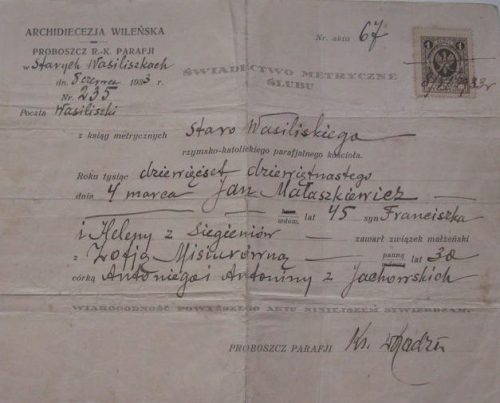 ARCHIDIECEZJA WILEŃSKA
PROBOSZCZ R.-K. PARAFJI
w Starych Wasiliszkach
dn. 8 czerwca 1933 r.
Nr. 235
Poczta Wasiliszki
Nr. aktu 67
1 1
ŚWIADECTWO METRYCZNE
ŚLUBU
z ksiąg metrycznych Staro Wasiliskiego
rzymsko-katolickiego parafjalnego kościoła.
Roku tysiąc dziewięćset dziewiętnastego
dnia 4 marca Jan Małaszkiewicz
kaw. wdow. lat 45 syn Franciszka
i Heleny z Siegieniów zawarł związek małżeński
z Zofją Misiurówną panną lat 30
córką Antoniego i Antoniny z Jachowskich
WIAROGODNOŚĆ POWYŻSZEGO AKTU NINIEJSZEM STWIERDZAM.
PROBOSZCZ PARAFJI Ks.